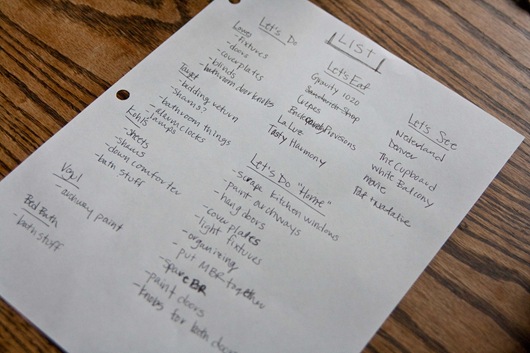 LIST
Let's Do
Lowes
-fixtures
-doors
-coverplates
-blinds
-bathroom door knobs
Target
-bedding return
-shams?
-bathroom things
-alarm clocks
-lamps
Kohls
-sheets
-shams
-down comforter
-bath stuff
-archway paint
Bed Bath
-bath stuff
Let's Eat
Gravity 1020
Sandwich Shop
Crepes
Provisions
La Live
Tasty Harmony
Let's Do "Home"
-scrape kitchen windows
-paint archways
-hang doors
-cover plates
-light fixtures
-organizing
-put MBR together
-spare BR
-paint doors
-knobs for both doors
Let's See
Nederland
Denver
The Cupboard
White Balcony
movie